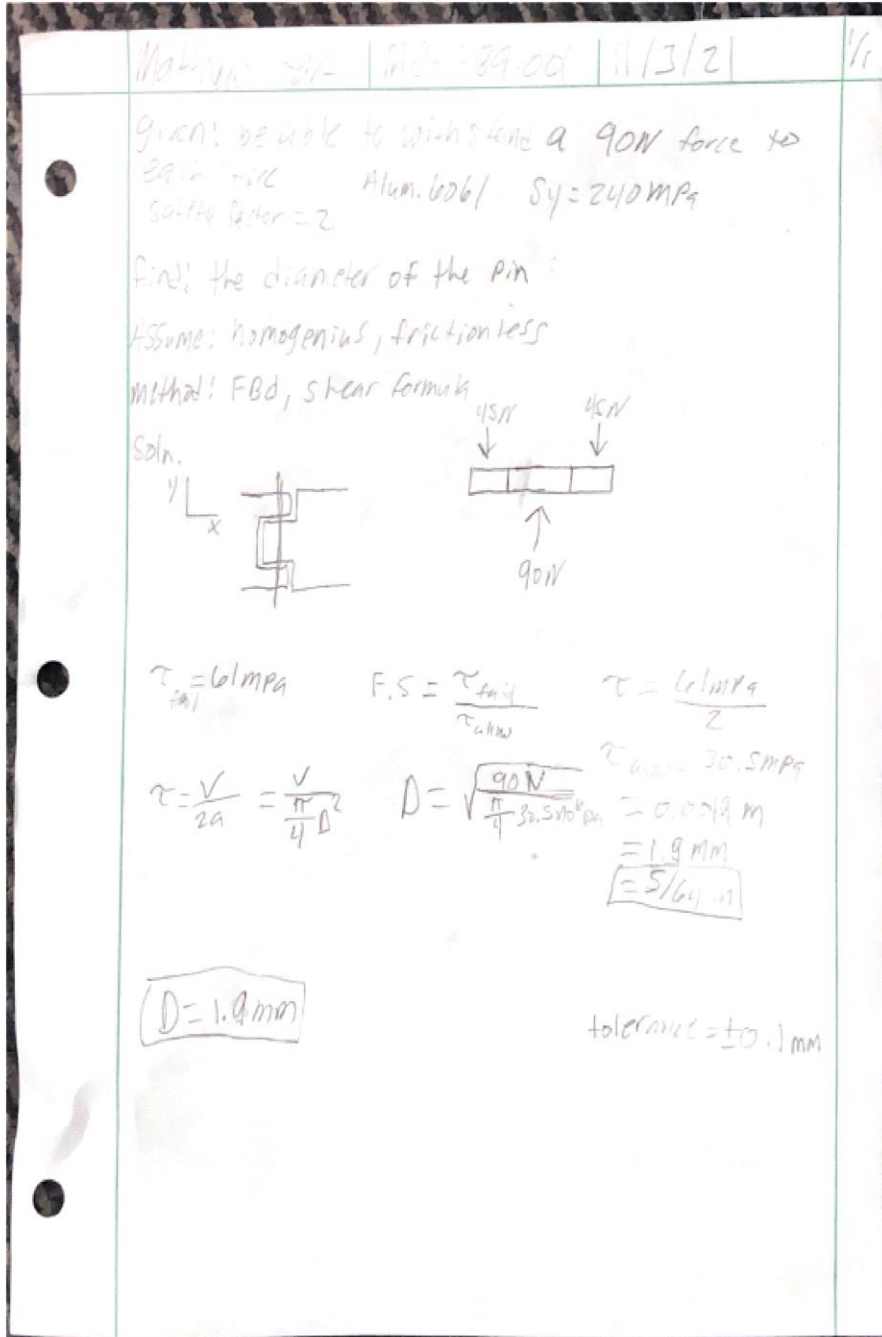 11/3/21 1/1
given: be able to withstand a 90N force to
each Alum. 6061 Sy = 240 MPa
safety factor = 2
find: the diameter of the pin
Assume: homogenius, frictionless
method: FBd, shear formula
Soln.
45N 45N
y
x
90N
τfail = 61mpa F.S = τfail/τallow τ = 61mpa/2
τallow = 30.5mpa
τ = V/2a = V/(π/4 D²) D = √(90N/(π/4 30.5x10⁶pa)) = 0.0019 m
= 1.9 mm
= 5/64 in
D = 1.9mm
tolerance = ±0.1 mm